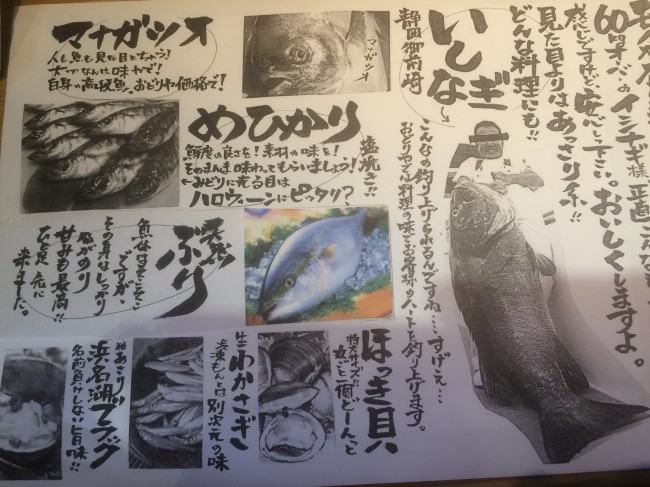 60kgオーバーのイシナギ様、正直こんな
感じですけど安心して下さい。おいしくしますよ。
見た目よりはあっさり系!!
どんな料理にも!!
いしなぎ
静岡 御前崎
こんなの釣り上げられるんですね…すげえ…
おどりやでは料理の味でお客様のハートを釣り上げます。
マナガツオ
人も魚も見た目とちゃう!
大切なんは味やで!
白身の高級魚、おどりや価格で!
マナガツオ
めひかり
塩焼き!!
鮮度の良さを!素材の味を!
そのまんま味わってもらいましょう!
←みどりに光る目は
ハロウィーンにピッタリ?
天然
ぶり
魚体はそこそこ
ですが、
その身はしっかり
脂がのり
甘みも最高!!
ほっき貝
特大サイズ!!
丸ごと一個どーんっと
生わかさぎ
冷凍もんとは別次元の味
あさり
浜名湖ブラック
名前負けしない旨味!!